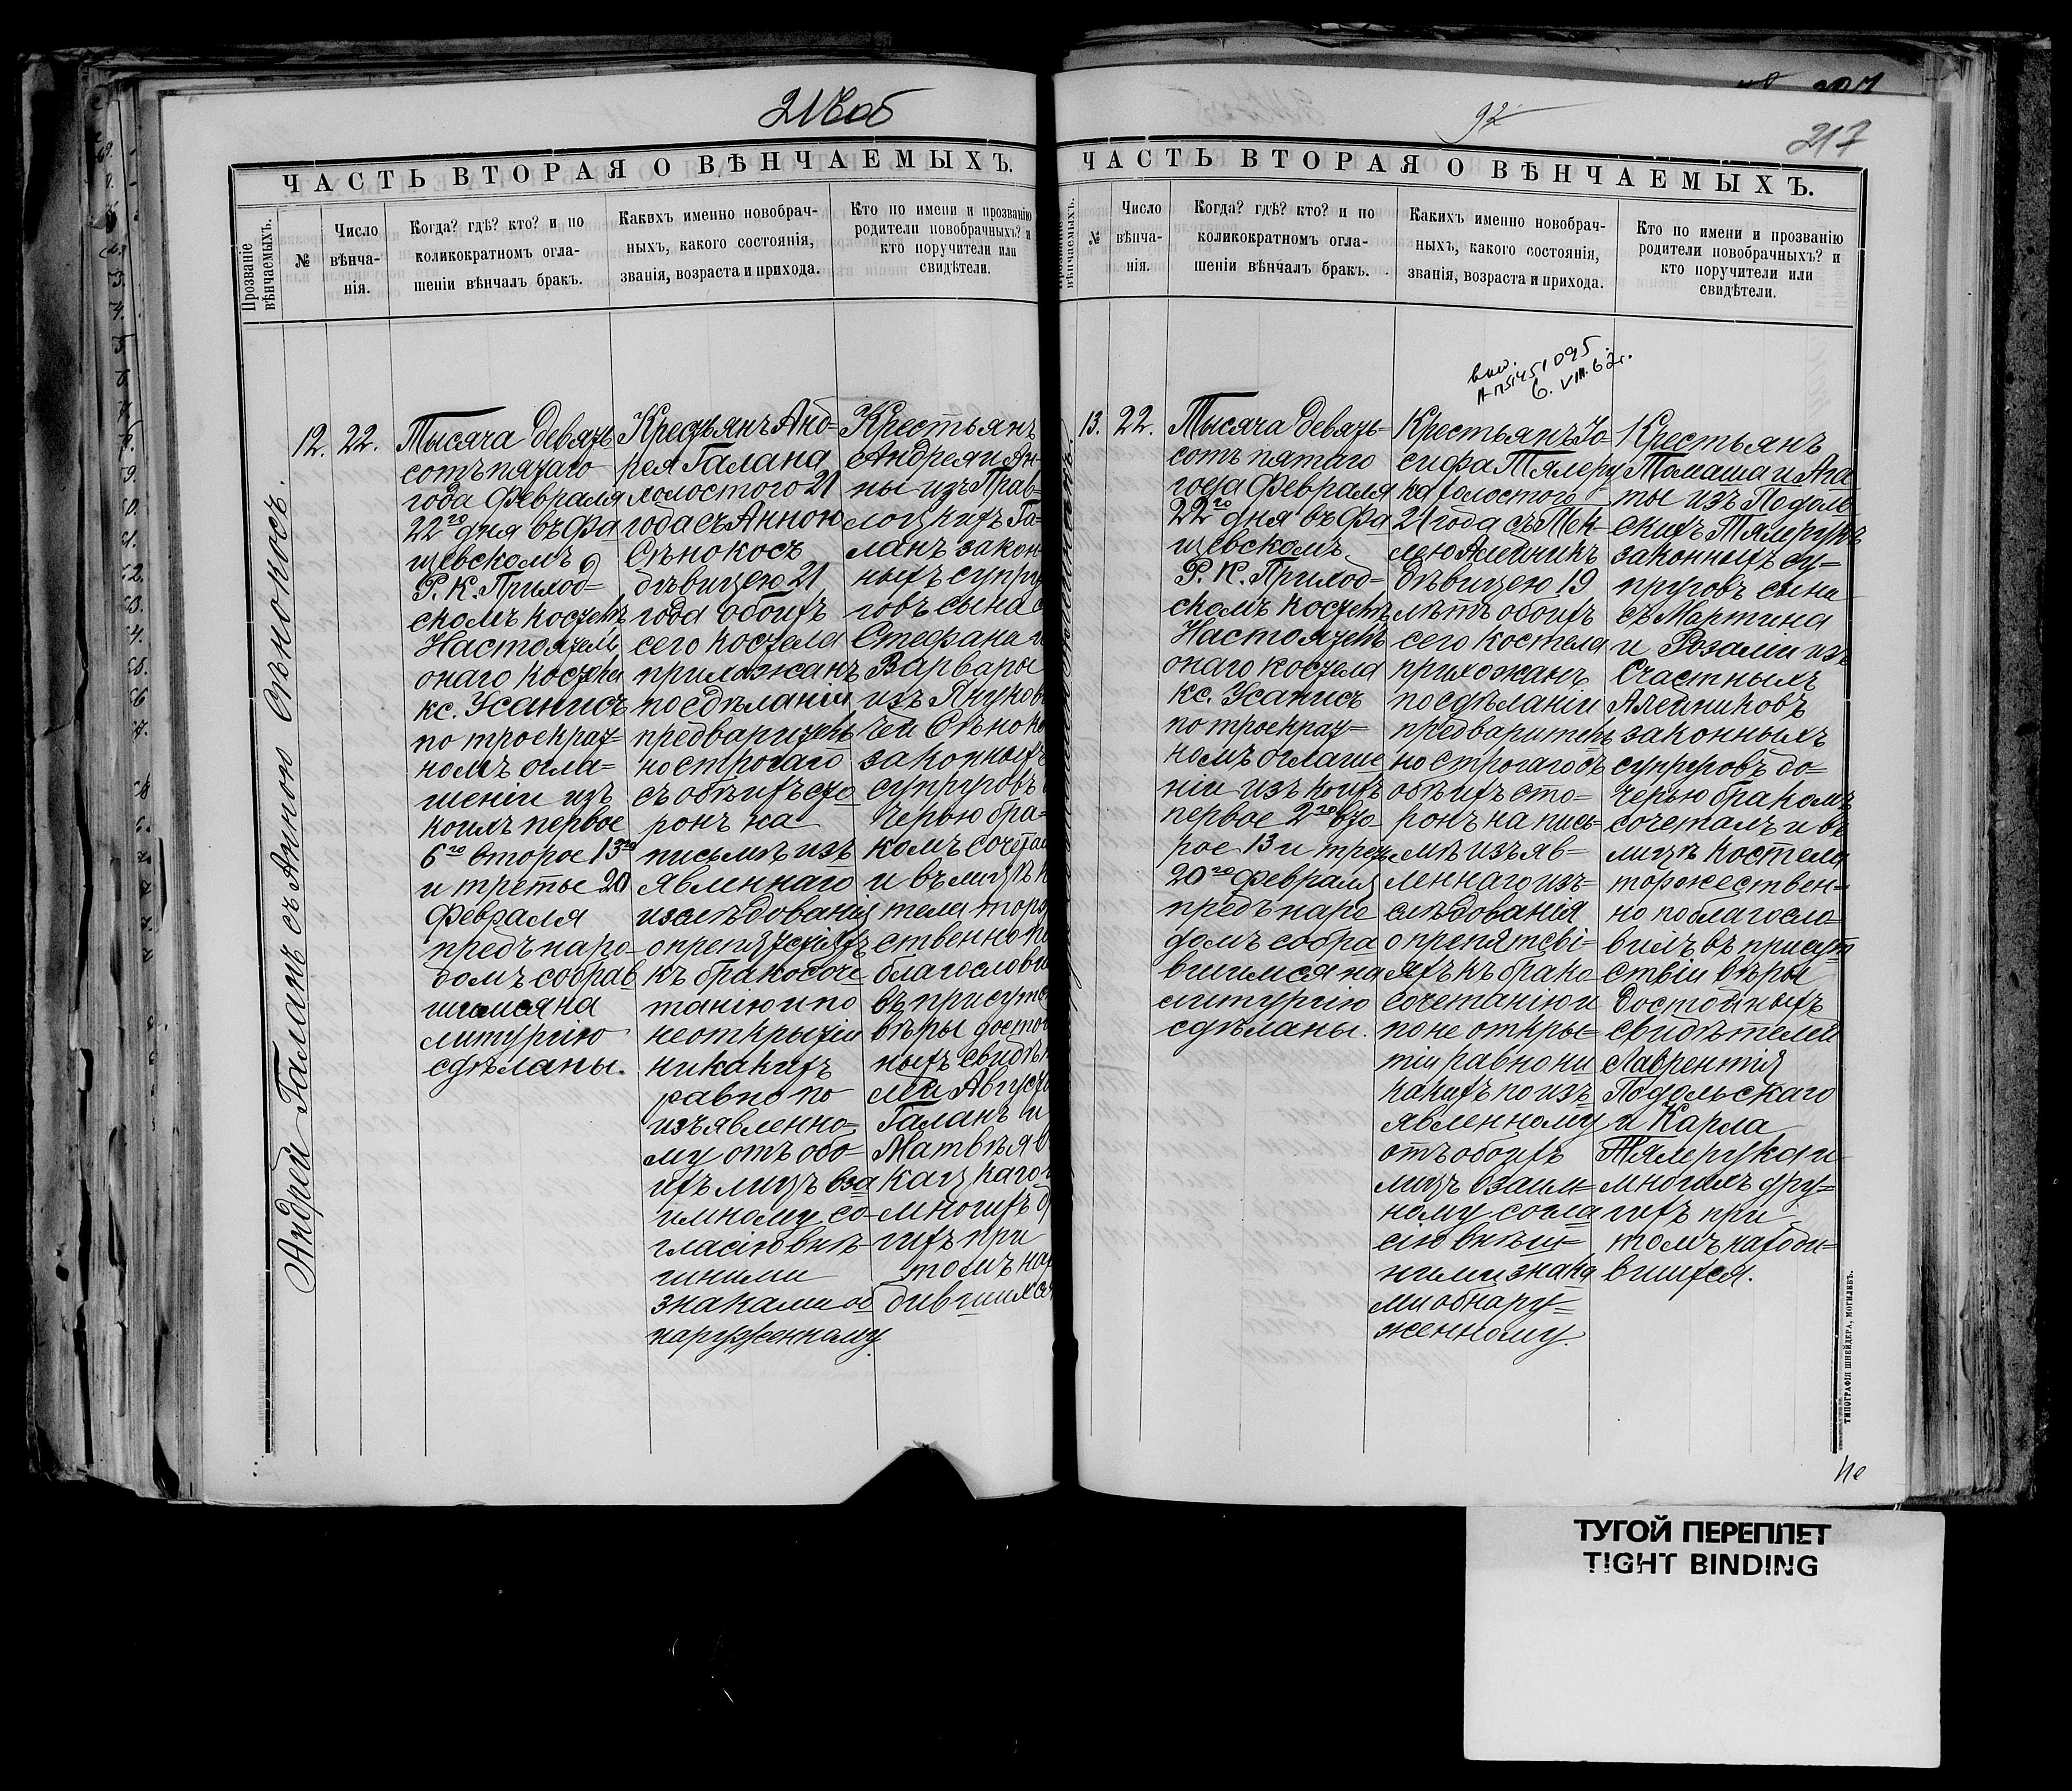 216об
ЧАСТЬ ВТОРАЯ О ВѢНЧАЕМЫХЪ.
Прозваніе
вѣнчаемыхъ.
№
Число
вѣнча-
нія.
Когда? гдѣ? кто? и по
коликократномъ огла-
шеніи вѣнчалъ бракъ.
Какихъ именно новобрач-
ныхъ, какого состоянія,
званія, возраста и прихода.
Кто по имени и прозванію
родители новобрачныхъ? и
кто поручители или
свидѣтели.
Андрей Галанъ съ Анною Сѣнокосъ.
12.
22.
Тысяча девять
сотъ пятаго
года Февраля
22го дня въ Фа
щевскомъ
Р. К. Приход-
скомъ костелѣ
Настоятель
онаго костела
кс. Усанисъ
по троекрат=
номъ огла=
шеніи изъ
коихъ первое
6го второе 13го
и третье 20
Февраля
предъ наро-
домъ собрав
шимся на
литургію
сдѣланы.
Крестьянъ Анд=
рея Галана
холостого 21
года съ Анною
Сѣнокосъ
дѣвицею 21
года обоихъ
сего костела
прихожанъ
по сдѣланіи
предваритель
но строгаго
съ обѣихъ сто
ронъ на
письмѣ изъ
явленнаго
изслѣдованія
о препятствіяхъ
къ бракосоче
танію и по
неоткрытіи
никакихъ
равно по
изъявленно=
му отъ обо-
ихъ лицъ вза
имному со-
гласію внѣ-
шними
знаками об
наруженному.
Крестьянъ
Андрея и Ан-
ны изъ Прав=
лоцкихъ Га=
ланъ закон
ныхъ супру
говъ сына с
Стефана и
Варвары
изъ Янукови
чей Сѣноко
законныхъ
супруговъ
черью бра=
комъ сочетал
и въ лицѣ к
тела торж
ственно по
благослови
въ присутс
вѣры досто
ныхъ свидѣт
лей Августи
Галанъ и
Матвѣя
кацкаго и
многихъ др
гихъ при
томъ нах
дившихся
92
217
ЧАСТЬ ВТОРАЯ О ВѢНЧАЕМЫХЪ.
вѣнчаемыхъ.
№
Число
вѣнча-
нія.
Когда? гдѣ? кто? и по
коликократномъ огла-
шеніи вѣнчалъ бракъ.
Какихъ именно новобрач-
ныхъ, какого состоянія,
званія, возраста и прихода.
Кто по имени и прозванію
родители новобрачныхъ? и
кто поручители или
свидѣтели.
6. VIII. 62г.
13.
22.
Тысяча девять=
сотъ пятаго
года Февраля
22го дня въ Фа
щевскомъ
Р. К. Приход=
скомъ костелѣ
Настоятель
онаго костела
кс. Усанисъ
по троекрат=
номъ оглаше
ніи изъ коихъ
первое 2го вто
рое 13 и трет
20го Февраля
предъ наро
домъ собра
вшимся на
литургію
сдѣланы.
Крестьянъ Іо-
сифа Тялеру
ка холостого
21 года съ Тек-
лею Алейникъ
дѣвицею 19
лѣтъ обоихъ
сего костела
прихожанъ
по сдѣланіи
предваритель
но строгаго съ
обѣихъ сто=
ронъ на пись=
мѣ изъяв=
леннаго изъ=
слѣдованія
о препятстві=
яхъ къ брако
сочетанію и
по не откры=
тіи равно ни
какихъ по изъ
явленному
отъ обоихъ
лицъ взаим=
ному согла
сію внѣш=
ними знака
ми обнару=
женному.
Крестьянъ
Томаша и Ага
ты изъ Подоль
скихъ Тялеруковъ
законныхъ су=
пруговъ сына
съ Мартина
и Розаліи изъ
Счастныхъ
Алейниковъ
законныхъ
супруговъ до=
черью бракомъ
сочеталъ и въ
лицѣ костела
торжествен=
но поблагосло=
вилъ въ присут
ствіи вѣры
достойныхъ
свидѣтелей
Лаврентія
Подольскаго
и Карла
Тялерука и
многихъ дру=
гихъ при
томъ находи=
вшихся.
ТИПОГРАФІЯ ШНЕЙДЕРА, МОГИЛЕВЪ.
ТУГОЙ ПЕРЕПЛЕТ
TIGHT BINDING